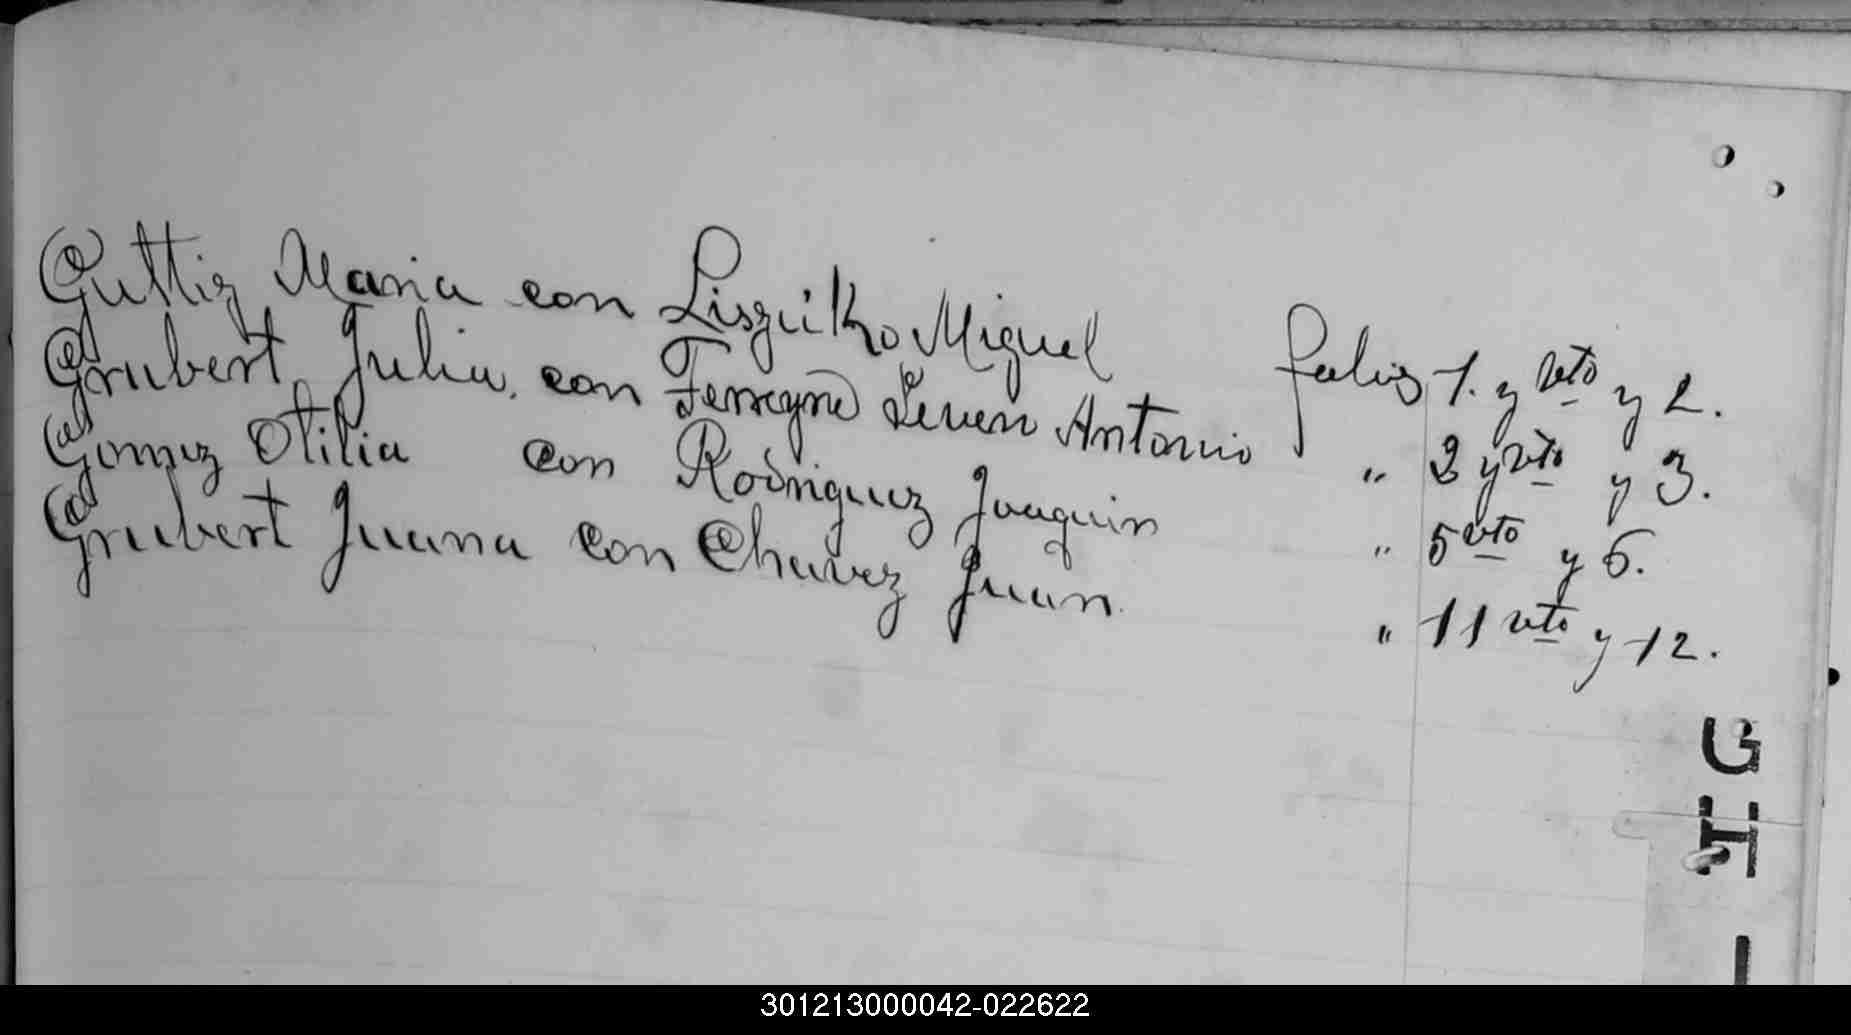 Guttiz Maria con Liszúiko Miguel folios 1. y vto y 2.
Grubert Julia, con Ferreyra Seven Antonio " 2 y vto y 3.
Gomez Otilia con Rodriguez Joaquin " 5 vto y 6.
Grubert Juana con Chavez Juan. " 11 vto y 12.
G
H
I
301213000042-022622